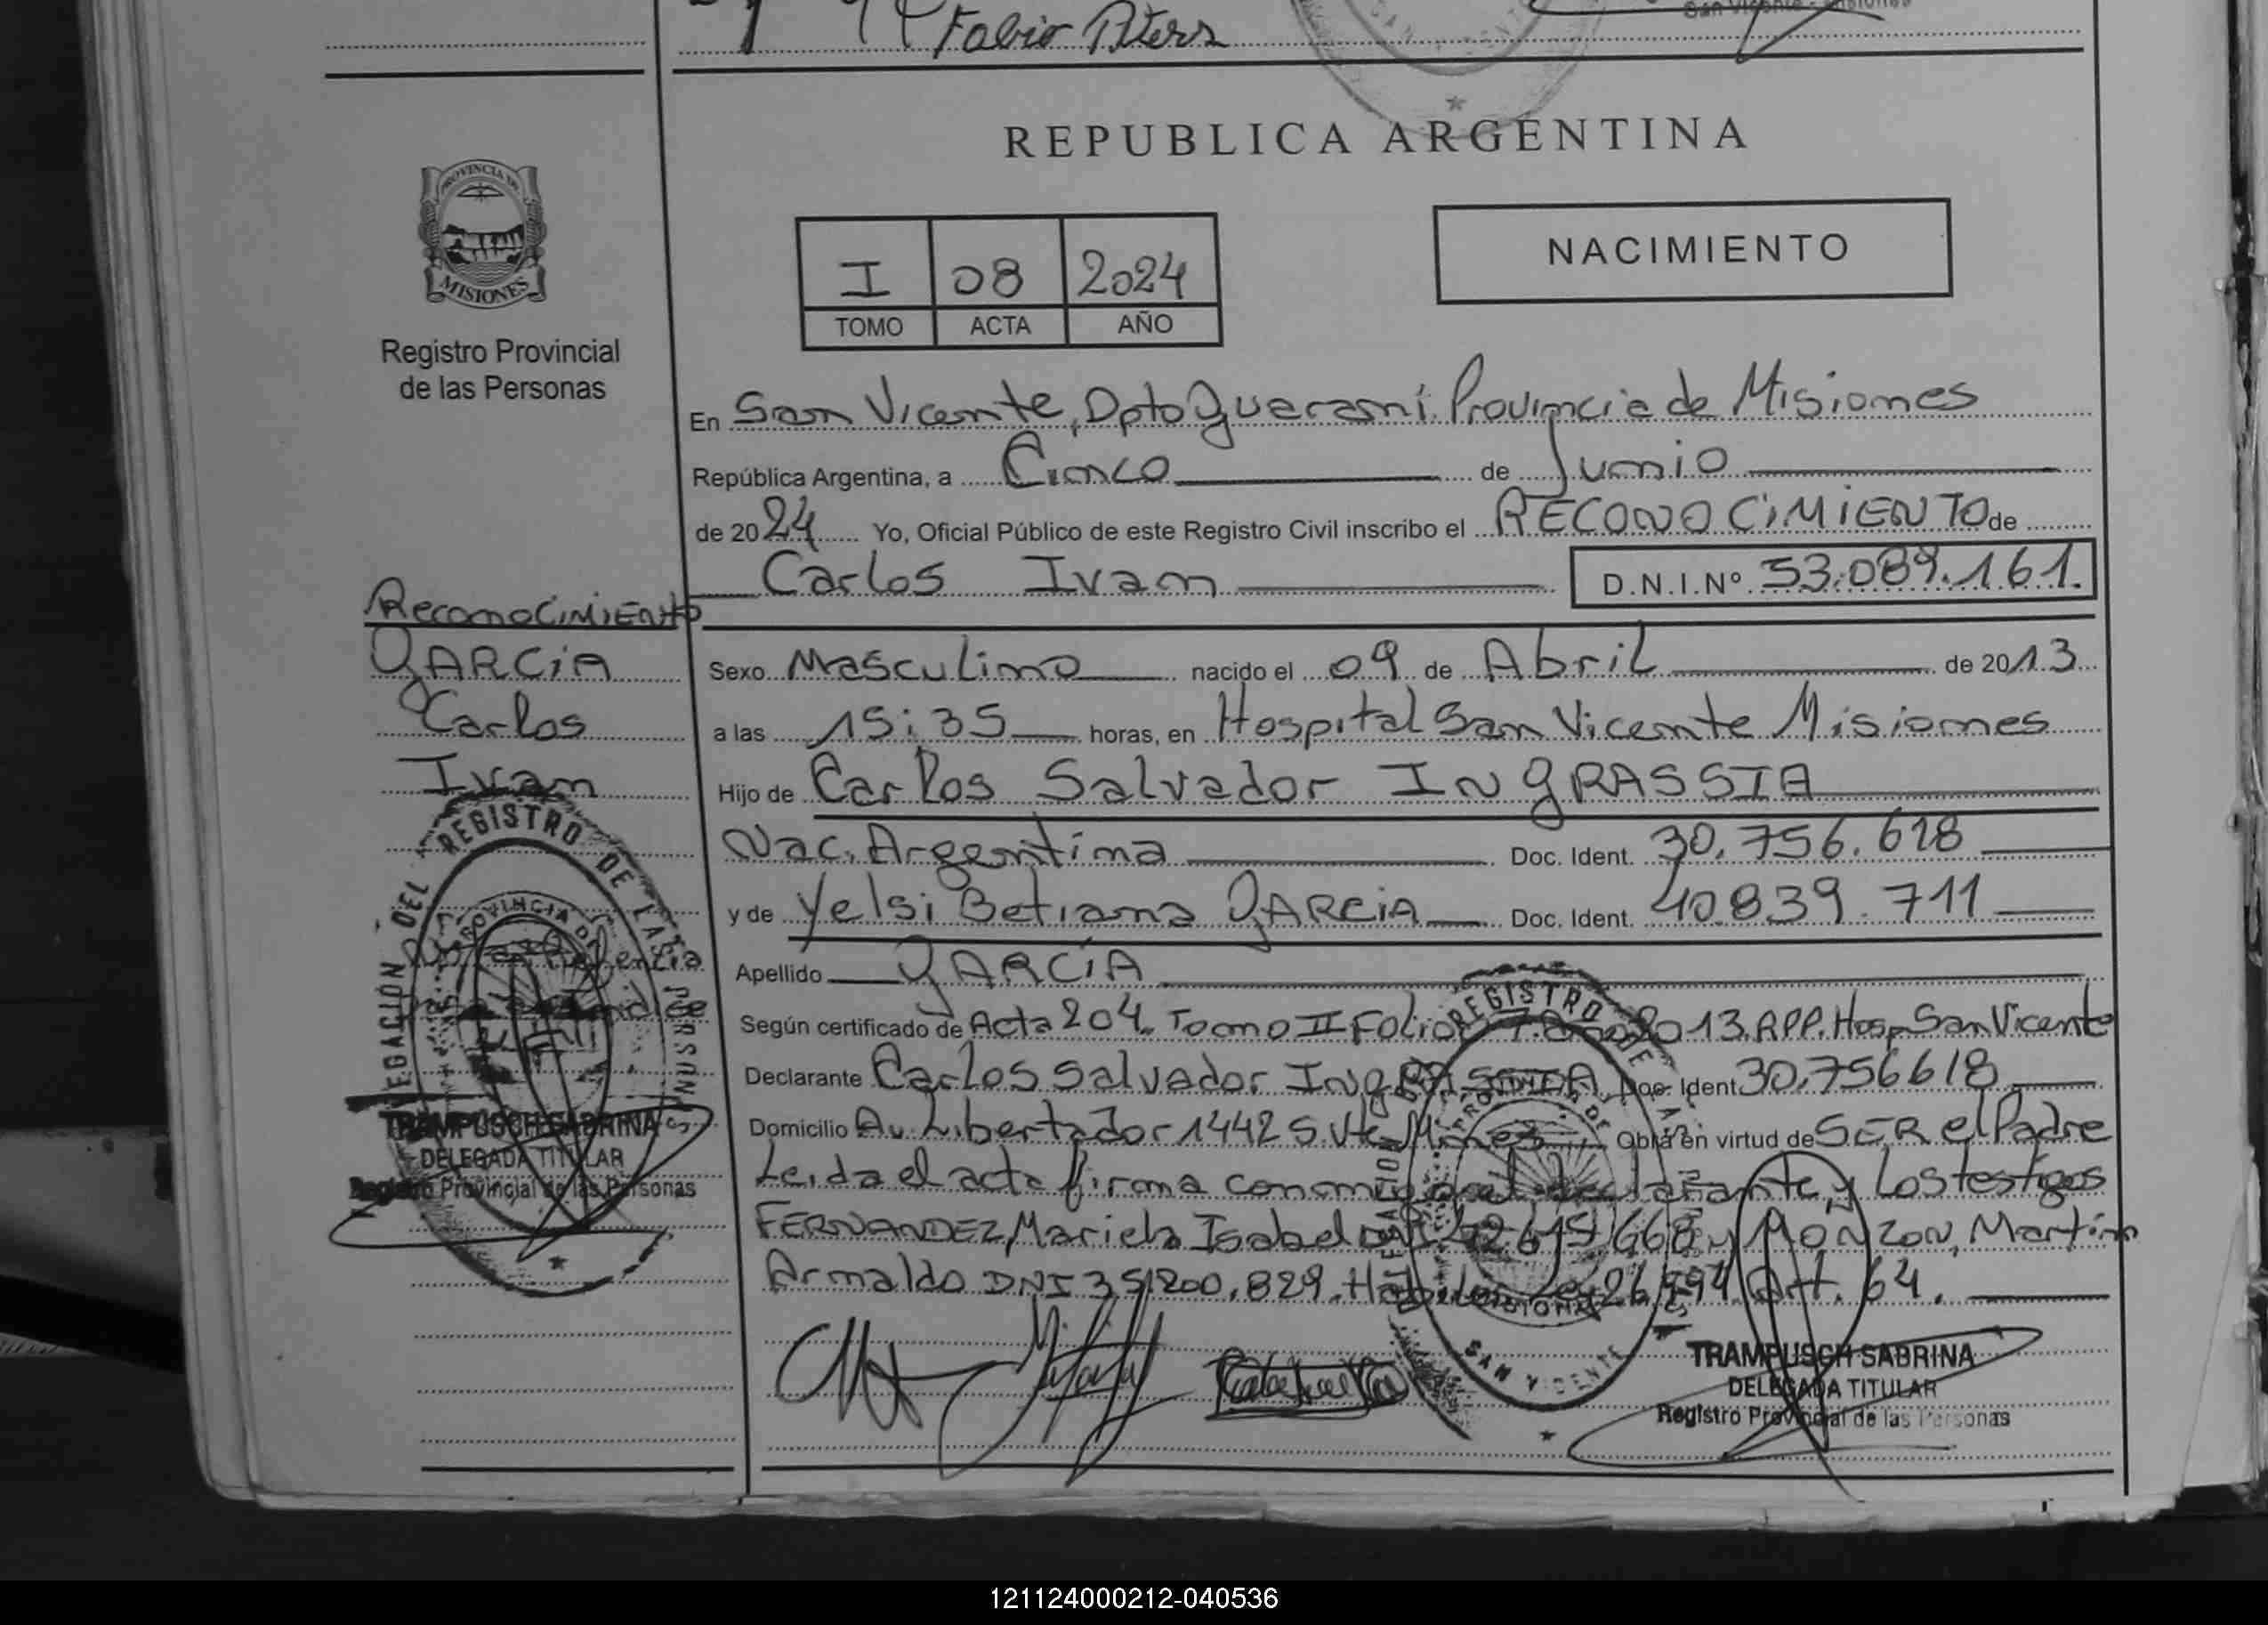 Fabio
San Vicente - Misiones
REPUBLICA ARGENTINA
PROVINCIA DE
MISIONES
Registro Provincial
de las Personas
I 08 2024
TOMO ACTA AÑO
NACIMIENTO
En San Vicente, Dpto Guaraní Provincia de Misiones
República Argentina, a Cinco de Junio
de 2024 Yo, Oficial Público de este Registro Civil inscribo el RECONOCIMIENTO de
Carlos Ivan D.N.I.Nº 53.089.161.
Reconocimiento
GARCIA
Carlos
Ivan
Sexo Masculino nacido el 09 de Abril de 2013
a las 15:35 horas, en Hospital San Vicente Misiones
Hijo de Carlos Salvador INGRASSIA
Nac. Argentina Doc. Ident. 30.756.618
y de Yelsi Betiana GARCIA Doc. Ident. 40.839.711
Apellido GARCÍA
Según certificado de Acta 204 Tomo II Folio 2013. RPP. Hosp San Vicente
Declarante Carlos Salvador INGRASSIA Doc. Ident 30.756618
Domicilio Av Libertador 1442 S. Vte Mnes Obra en virtud de SER el Padre
Leida el acta firma conmigo el declarante y Los testigos
FERNANDEZ, Mariela Isabel DNI y MONZON, Martín
Arnaldo DNI 35.200.829. Ley 26.994 Art. 64.
DELEGACION DEL REGISTRO DE LAS PERSONAS
PROVINCIA DE
TRAMPUSCH SABRINA
DELEGADA TITULAR
Registro Provincial de las Personas
REGISTRO DE
SAN VICENTE
TRAMPUSCH SABRINA
DELEGADA TITULAR
Registro Provincial de las Personas
121124000212-040536